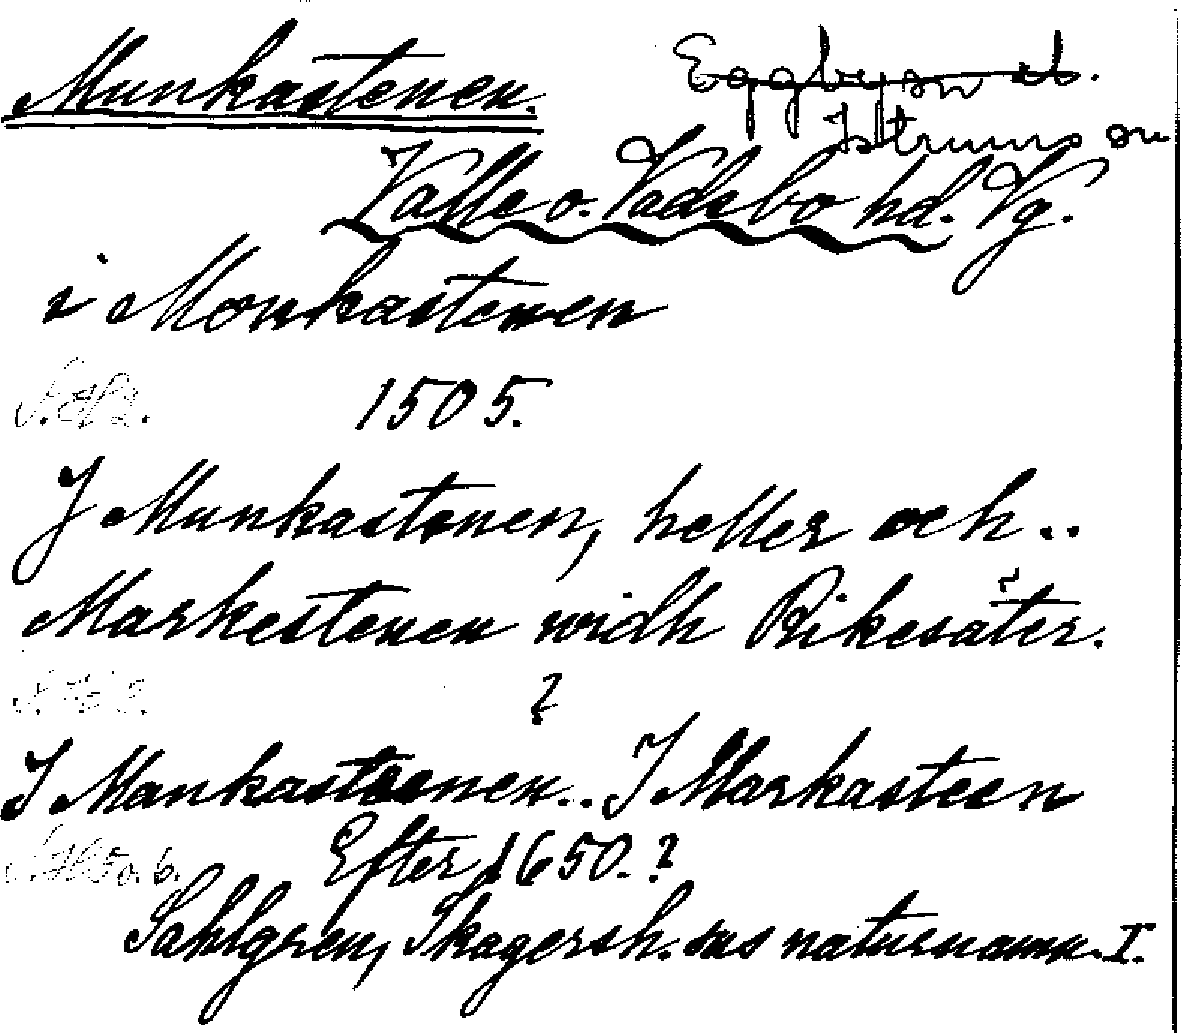 Munkastenen.
Eggby sn
Istrums sn
Valle o. Vadsbo hd. Vg.
i Monkastenen
1505.
J Munkastenen, heller och ..
Markestenen widh Rikesäter.
?
J Mankastenen.. J Markasteen
Efter 1650.?
Sahlgren, Skagersh.sns naturnamn. I.